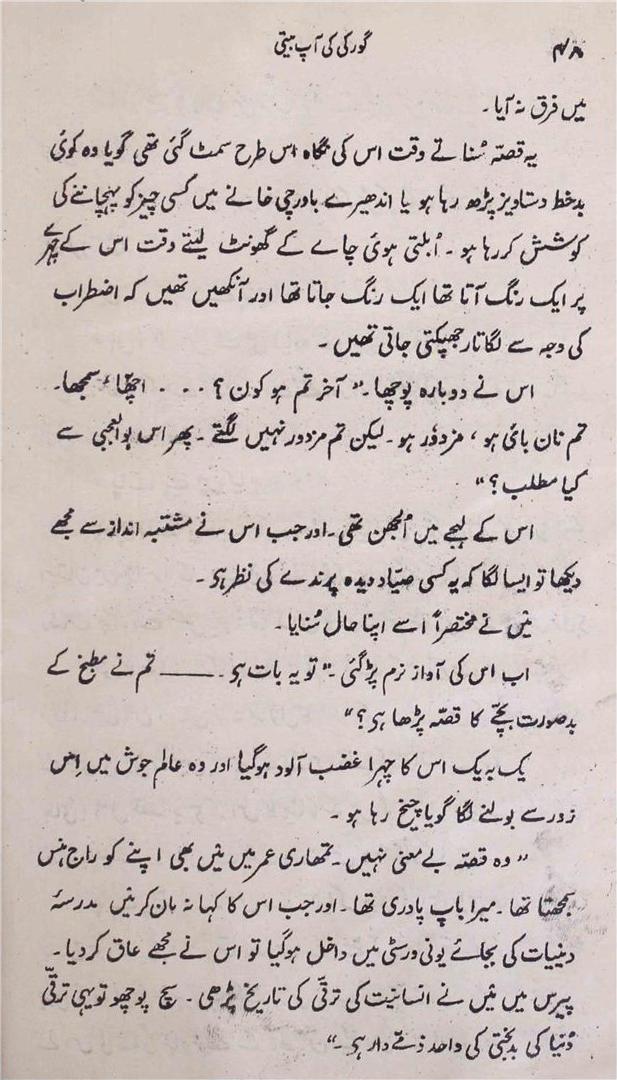 ۴۸
گورکی کی آپ بیتی
میں فرق نہ آیا۔
یہ قصّہ سُناتے وقت اس کی نگاہ اس طرح سمٹ گئی تھی گویا وہ کوئی
بدخط دستاویز پڑھ رہا ہو یا اندھیرے باورچی خانے میں کسی چیز کو پہچاننے کی
کوشش کر رہا ہو۔ اُبلتی ہوئی چاے کے گھونٹ لیتے وقت اس کے چہرے
پر ایک رنگ آتا تھا ایک رنگ جاتا تھا اور آنکھیں تھیں کہ اضطراب
کی وجہ سے لگاتار جھپکتی جاتی تھیں۔
اس نے دوبارہ پوچھا۔ ”آخر تم ہو کون؟ ... اچھّا، سمجھا۔
تم نان بائی ہو، مزدوٗر ہو۔ لیکن تم مزدور نہیں لگتے۔ پھر اس بوالعجبی سے
کیا مطلب؟“
اس کے لہجے میں اُلجھن تھی۔ اور جب اس نے مشتبہ انداز سے مجھے
دیکھا تو ایسا لگا کہ یہ کسی صیّاد دیدہ پرندے کی نظر ہو۔
مَیں نے مختصراً اسے اپنا حال سُنایا۔
اب اس کی آواز نرم پڑ گئی۔ ”تو یہ بات ہو۔ —— تم نے مطبخ کے
بدصورت بچّے کا قصّہ پڑھا ہو؟“
یک بہ یک اس کا چہرا غضب آلود ہوگیا اور وہ عالمِ جوش میں اِس
زور سے بولنے لگا گویا چیخ رہا ہو۔
”وہ قصّہ بے معنی نہیں۔ تمھاری عمر میں مَیں بھی اپنے کو راج ہنس
سمجھتا تھا۔ میرا باپ پادری تھا۔ اور جب اس کا کہا نہ مان کر مَیں مدرسۂ
دینیات کی بجائے یونی ورسٹی میں داخل ہوگیا تو اس نے مجھے عاق کر دیا۔
پیرس میں مَیں نے انسانیت کی ترقّی کی تاریخ پڑھی۔ سچ پوچھو تو یہی ترقّی
دُنیا کی بدبختی کی واحد ذمّے دار ہو۔“